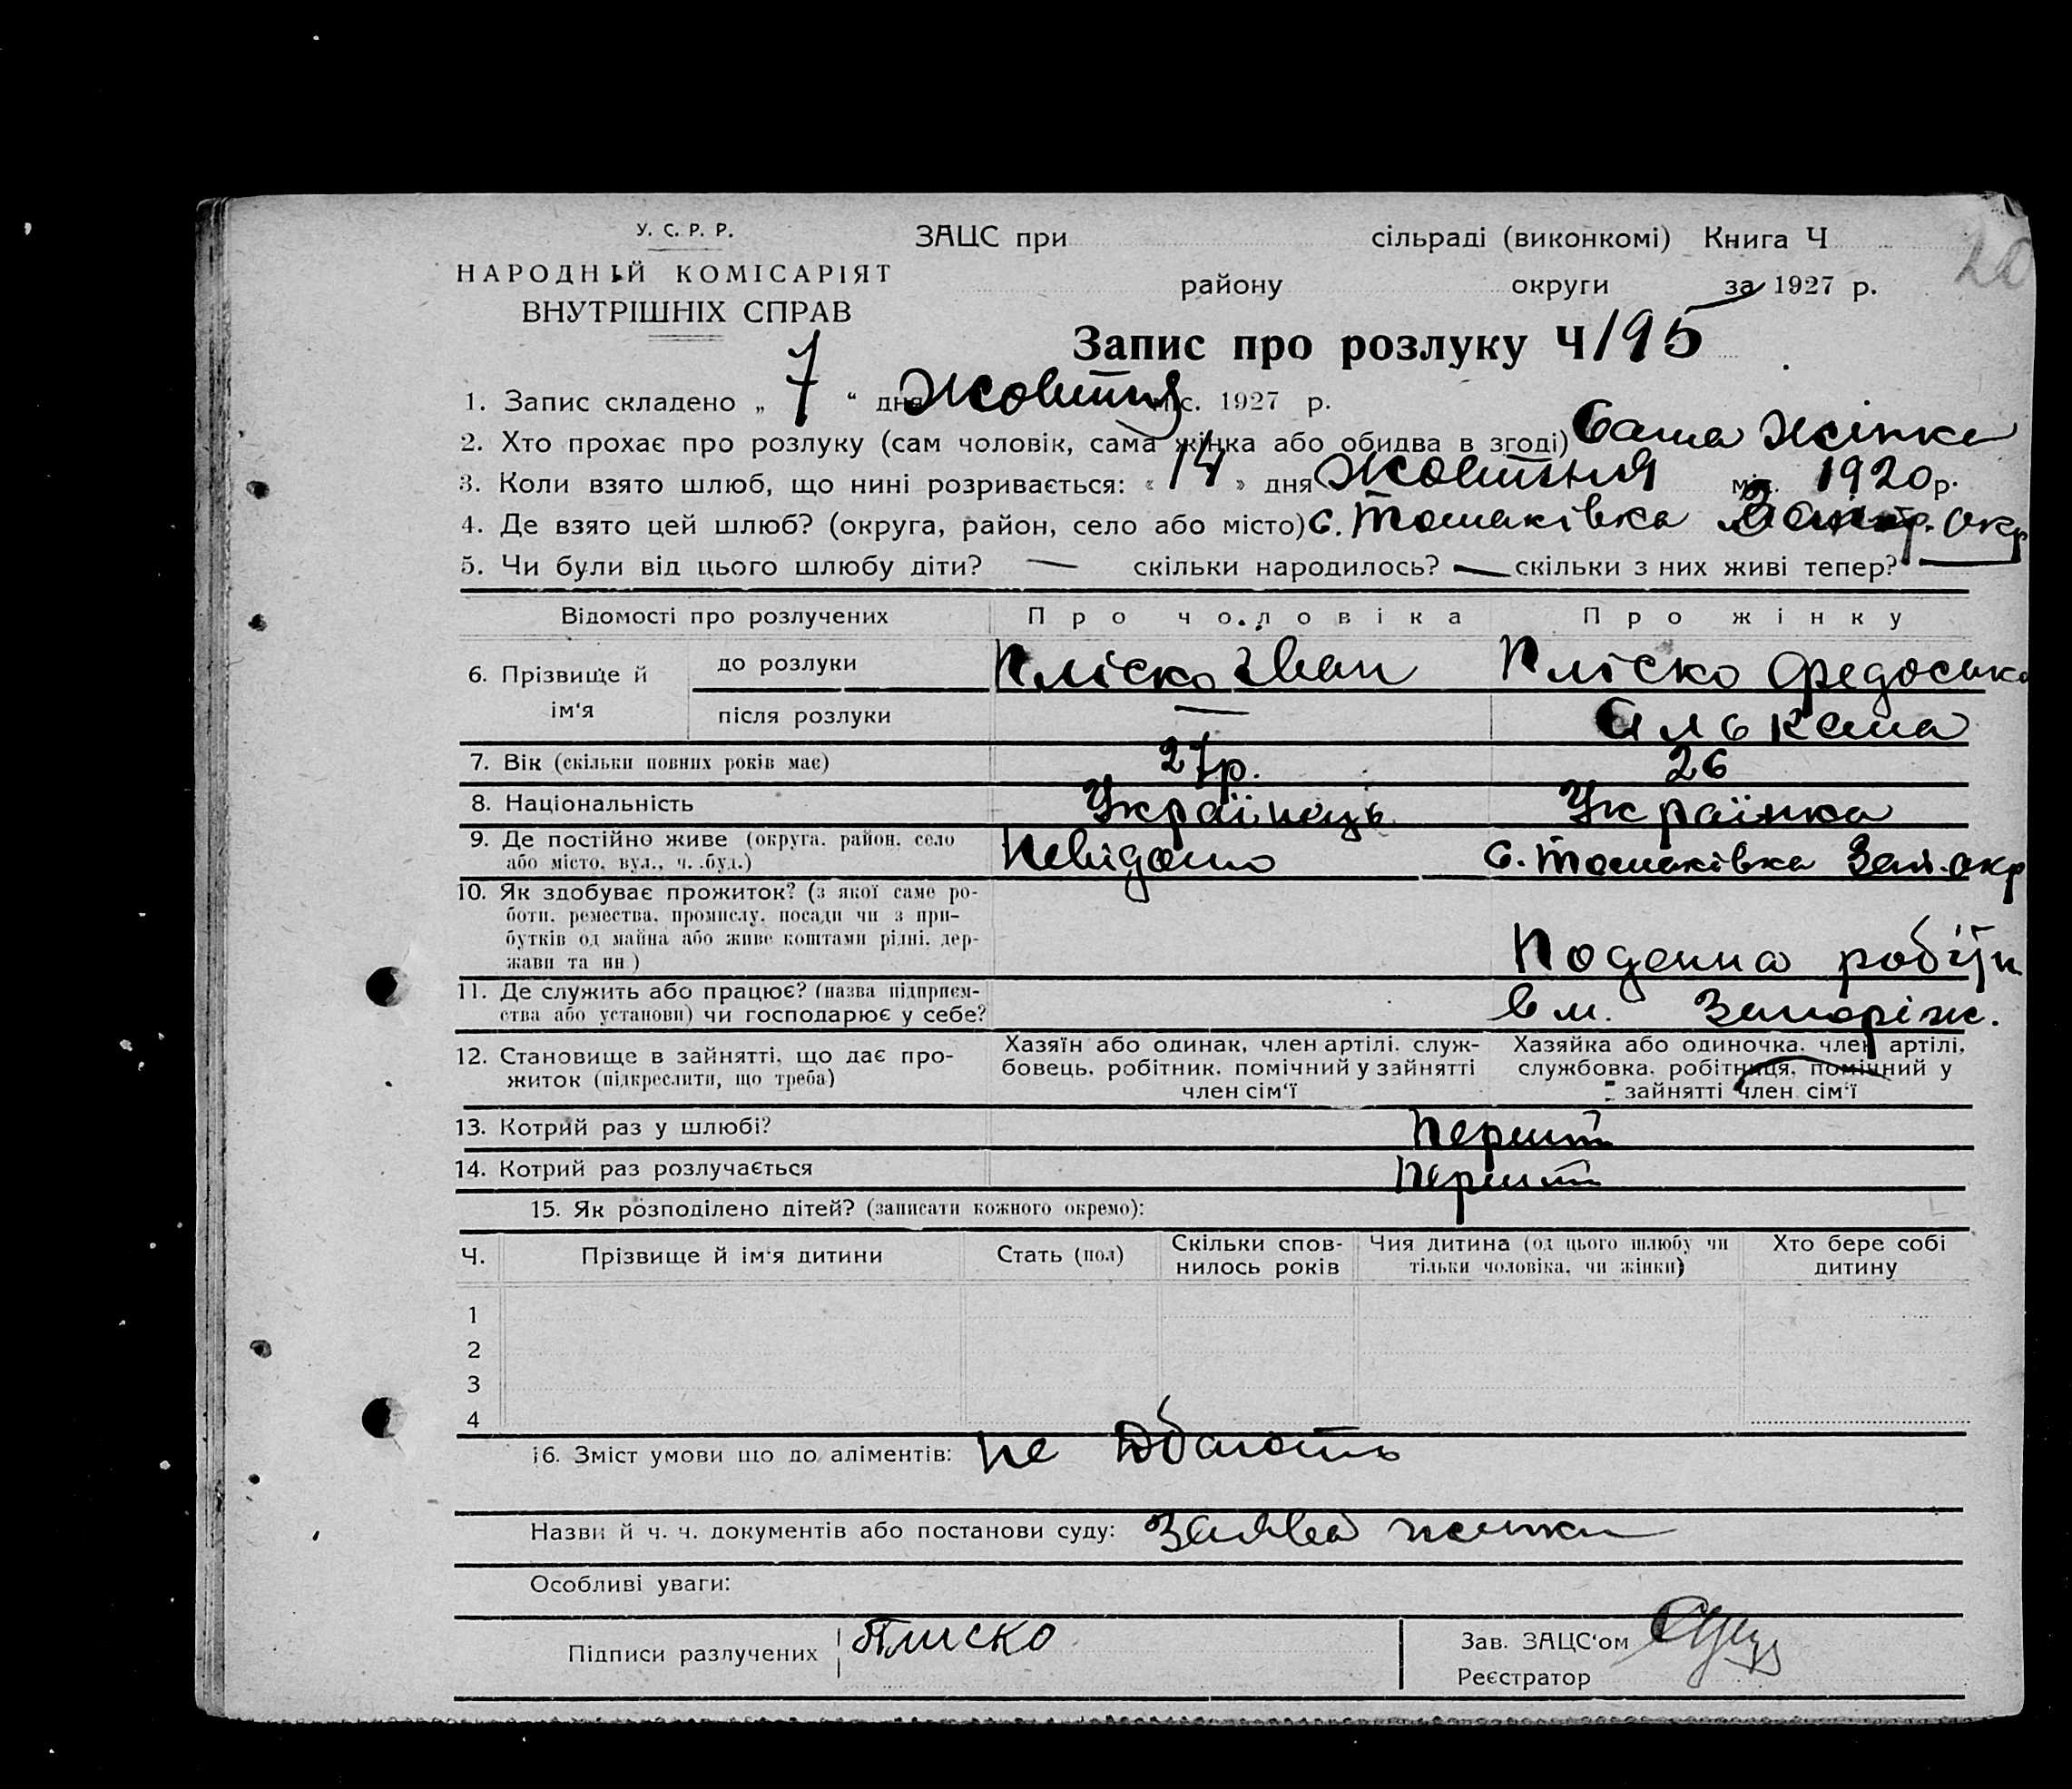 20
У. С. Р. Р.
НАРОДНІЙ КОМІСАРІЯТ
ВНУТРІШНІХ СПРАВ
ЗАЦС при сільраді (виконкомі) Книга Ч
району округи за 1927 р.
Запис про розлуку Ч 195
1. Запис складено „ 7 “ дня Жовтня міс. 1927 р.
2. Хто прохає про розлуку (сам чоловік, сама жінка або обидва в згоді) Сама жінка
3. Коли взято шлюб, що нині розривається: « 14 » дня Жовтня міс. 1920 р.
4. Де взято цей шлюб? (округа, район, село або місто) с. Томаківка Запор. окр
5. Чи були від цього шлюбу діти? — скільки народилось? — скільки з них живі тепер? —
Відомості про розлучених Про чоловіка Про жінку
6. Прізвище й ім'я до розлуки Пліско Іван Пліско Федоська
після розлуки —
7. Вік (скільки повних років має) 27р. 26
8. Національність Українець Українка
9. Де постійно живе (округа, район, село
або місто, вул., ч. буд.) Невідомо с. Томаківка Зап. окр
10. Як здобуває прожиток? (з якої саме ро-
боти, ремества, промислу, посади чи з при-
бутків од майна або живе коштами рідні, дер-
жави та ин.) Поденна робітн
11. Де служить або працює? (назва підприєм-
ства або установи) чи господарює у себе? в м. Запоріж.
12. Становище в зайнятті, що дає про-
житок (підкреслити, що треба)
Хазяїн або одинак, член артілі, служ-
бовець, робітник, помічний у зайнятті
член сім'ї
Хазяйка або одиночка, член артілі,
службовка, робітниця, помічний у
зайнятті член сім'ї
13. Котрий раз у шлюбі? Перший
14. Котрий раз розлучається Перший
15. Як розподілено дітей? (записати кожного окремо):
Ч. Прізвище й ім'я дитини Стать (пол) Скільки спов-
нилось років Чия дитина (од цього шлюбу чи
тільки чоловіка, чи жінки) Хто бере собі
дитину
1
2
3
4
16. Зміст умови що до аліментів: не дбають
Назви й ч. ч. документів або постанови суду: Заява жінки
Особливі уваги:
Підписи разлучених Плиско
Зав. ЗАЦС'ом
Реєстратор